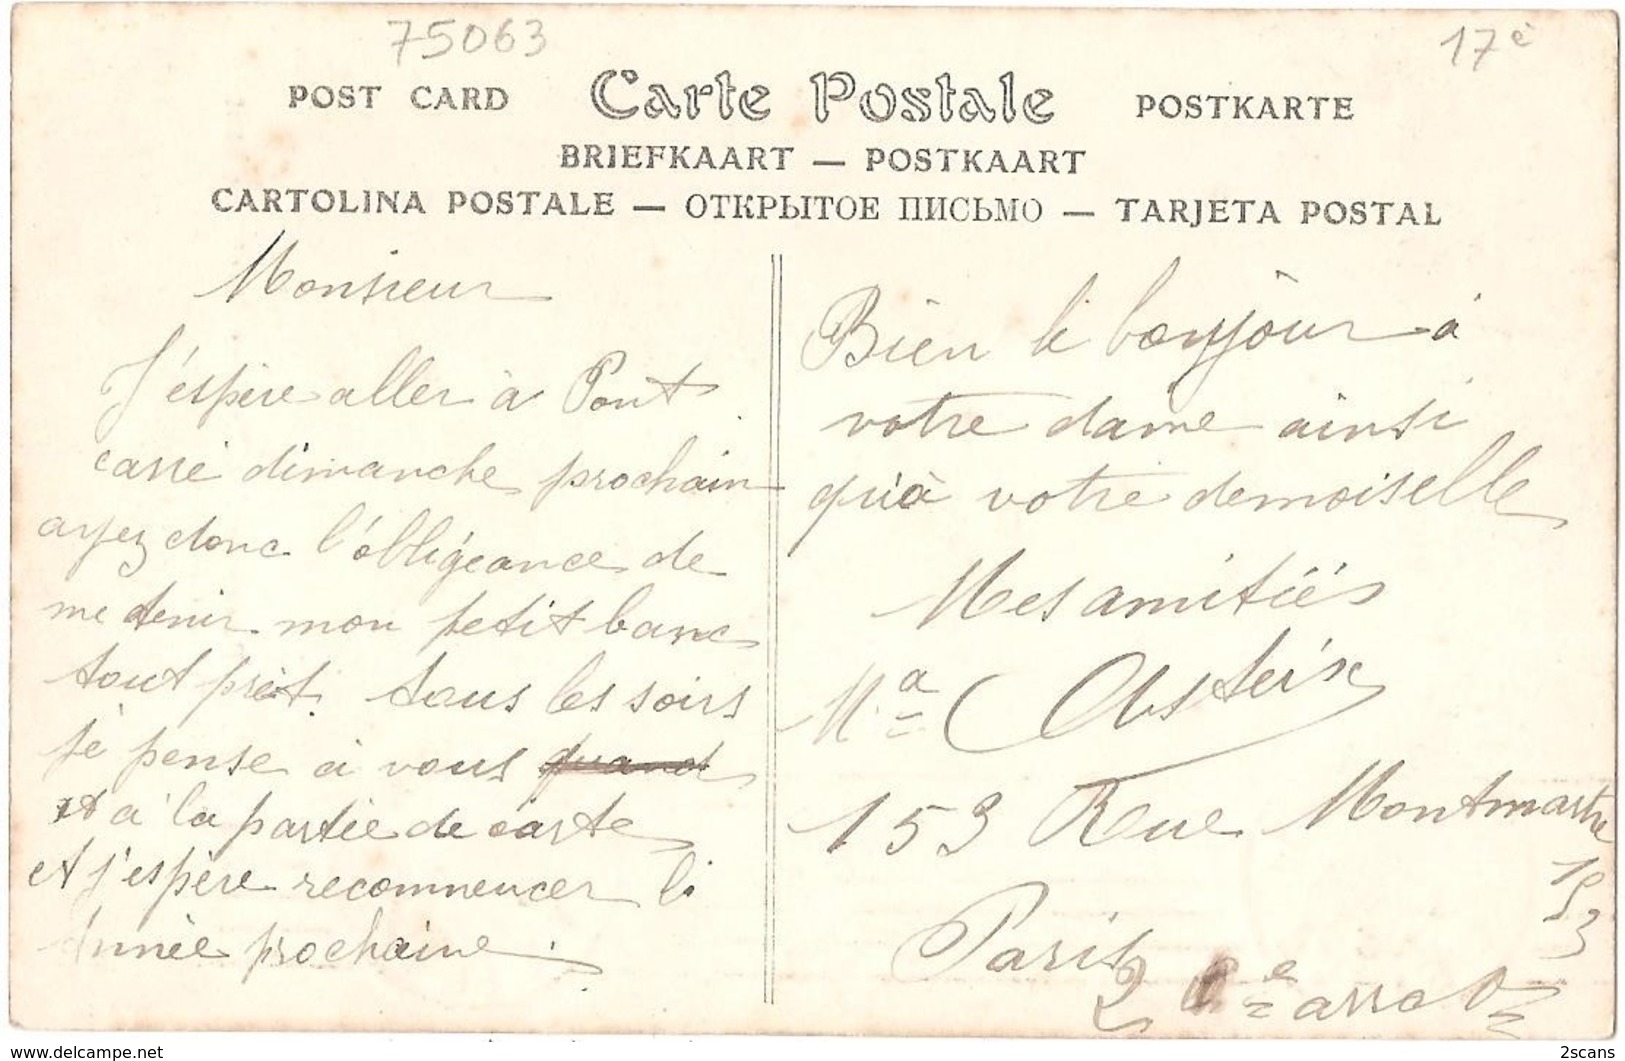 75063
17è
POST CARD Carte Postale POSTKARTE
BRIEFKAART — POSTKAART
CARTOLINA POSTALE — ОТКРЫТОЕ ПИСЬМО — TARJETA POSTAL
Monsieur
J'espère aller à Pont
carré dimanche prochain
ayez donc l'obligeance de
me tenir mon petit banc
tout prêt. tous les soirs
je pense à vous quand
et à la partie de carte
et j'espère recommencer l'
année prochaine.
Bien le bonjour à
votre dame ainsi
qu'à votre demoiselle
Mes amitiés
Ma
153 Rue Montmartre
153
Paris
2 e arro
2scans
www.delcampe.net